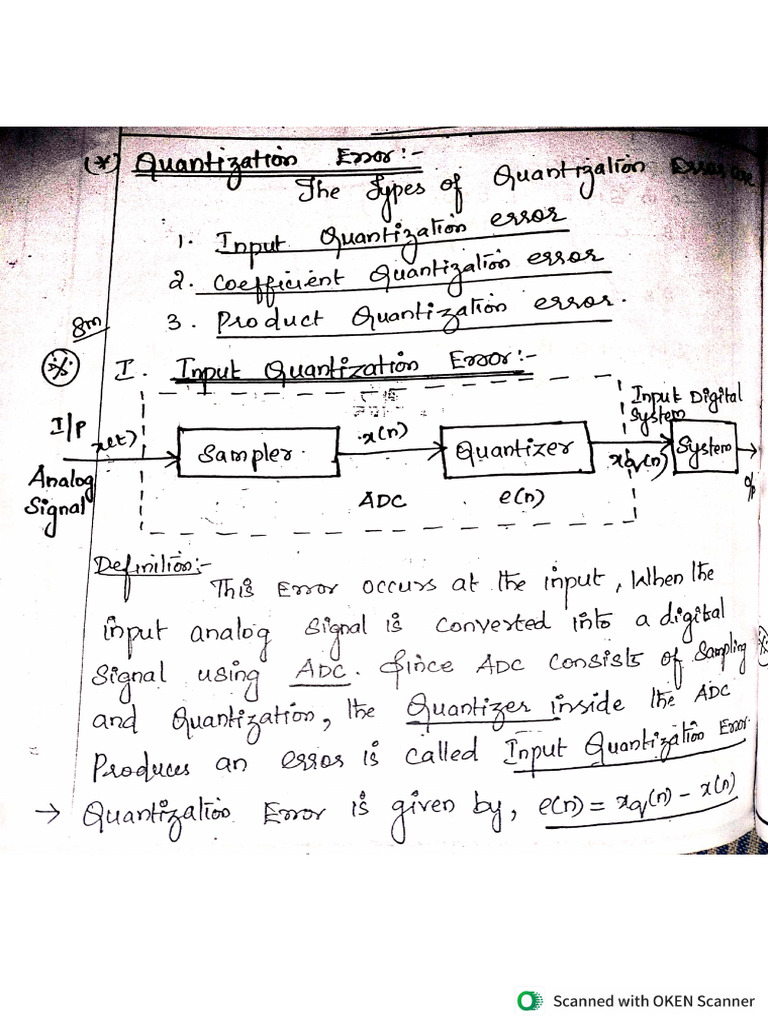 (*) Quantization Error:-
The Types of Quantization Error are
1. Input Quantization error
2. Coefficient Quantization error
3. Product Quantization error.
8m
I. Input Quantization Error:-
I/P
x(t)
Analog
Signal
Sampler.
x(n)
Quantizer
Input Digital
System
xq(n)
System
o/p
ADC e(n)
Definition:-
This Error occurs at the input, When the
input analog Signal is converted into a digital
Signal using ADC. Since ADC consists of Sampling
and Quantization, the Quantizer inside the ADC
Produces an error is called Input Quantization Error.
→ Quantization Error is given by, e(n) = xq(n) - x(n)
Scanned with OKEN Scanner